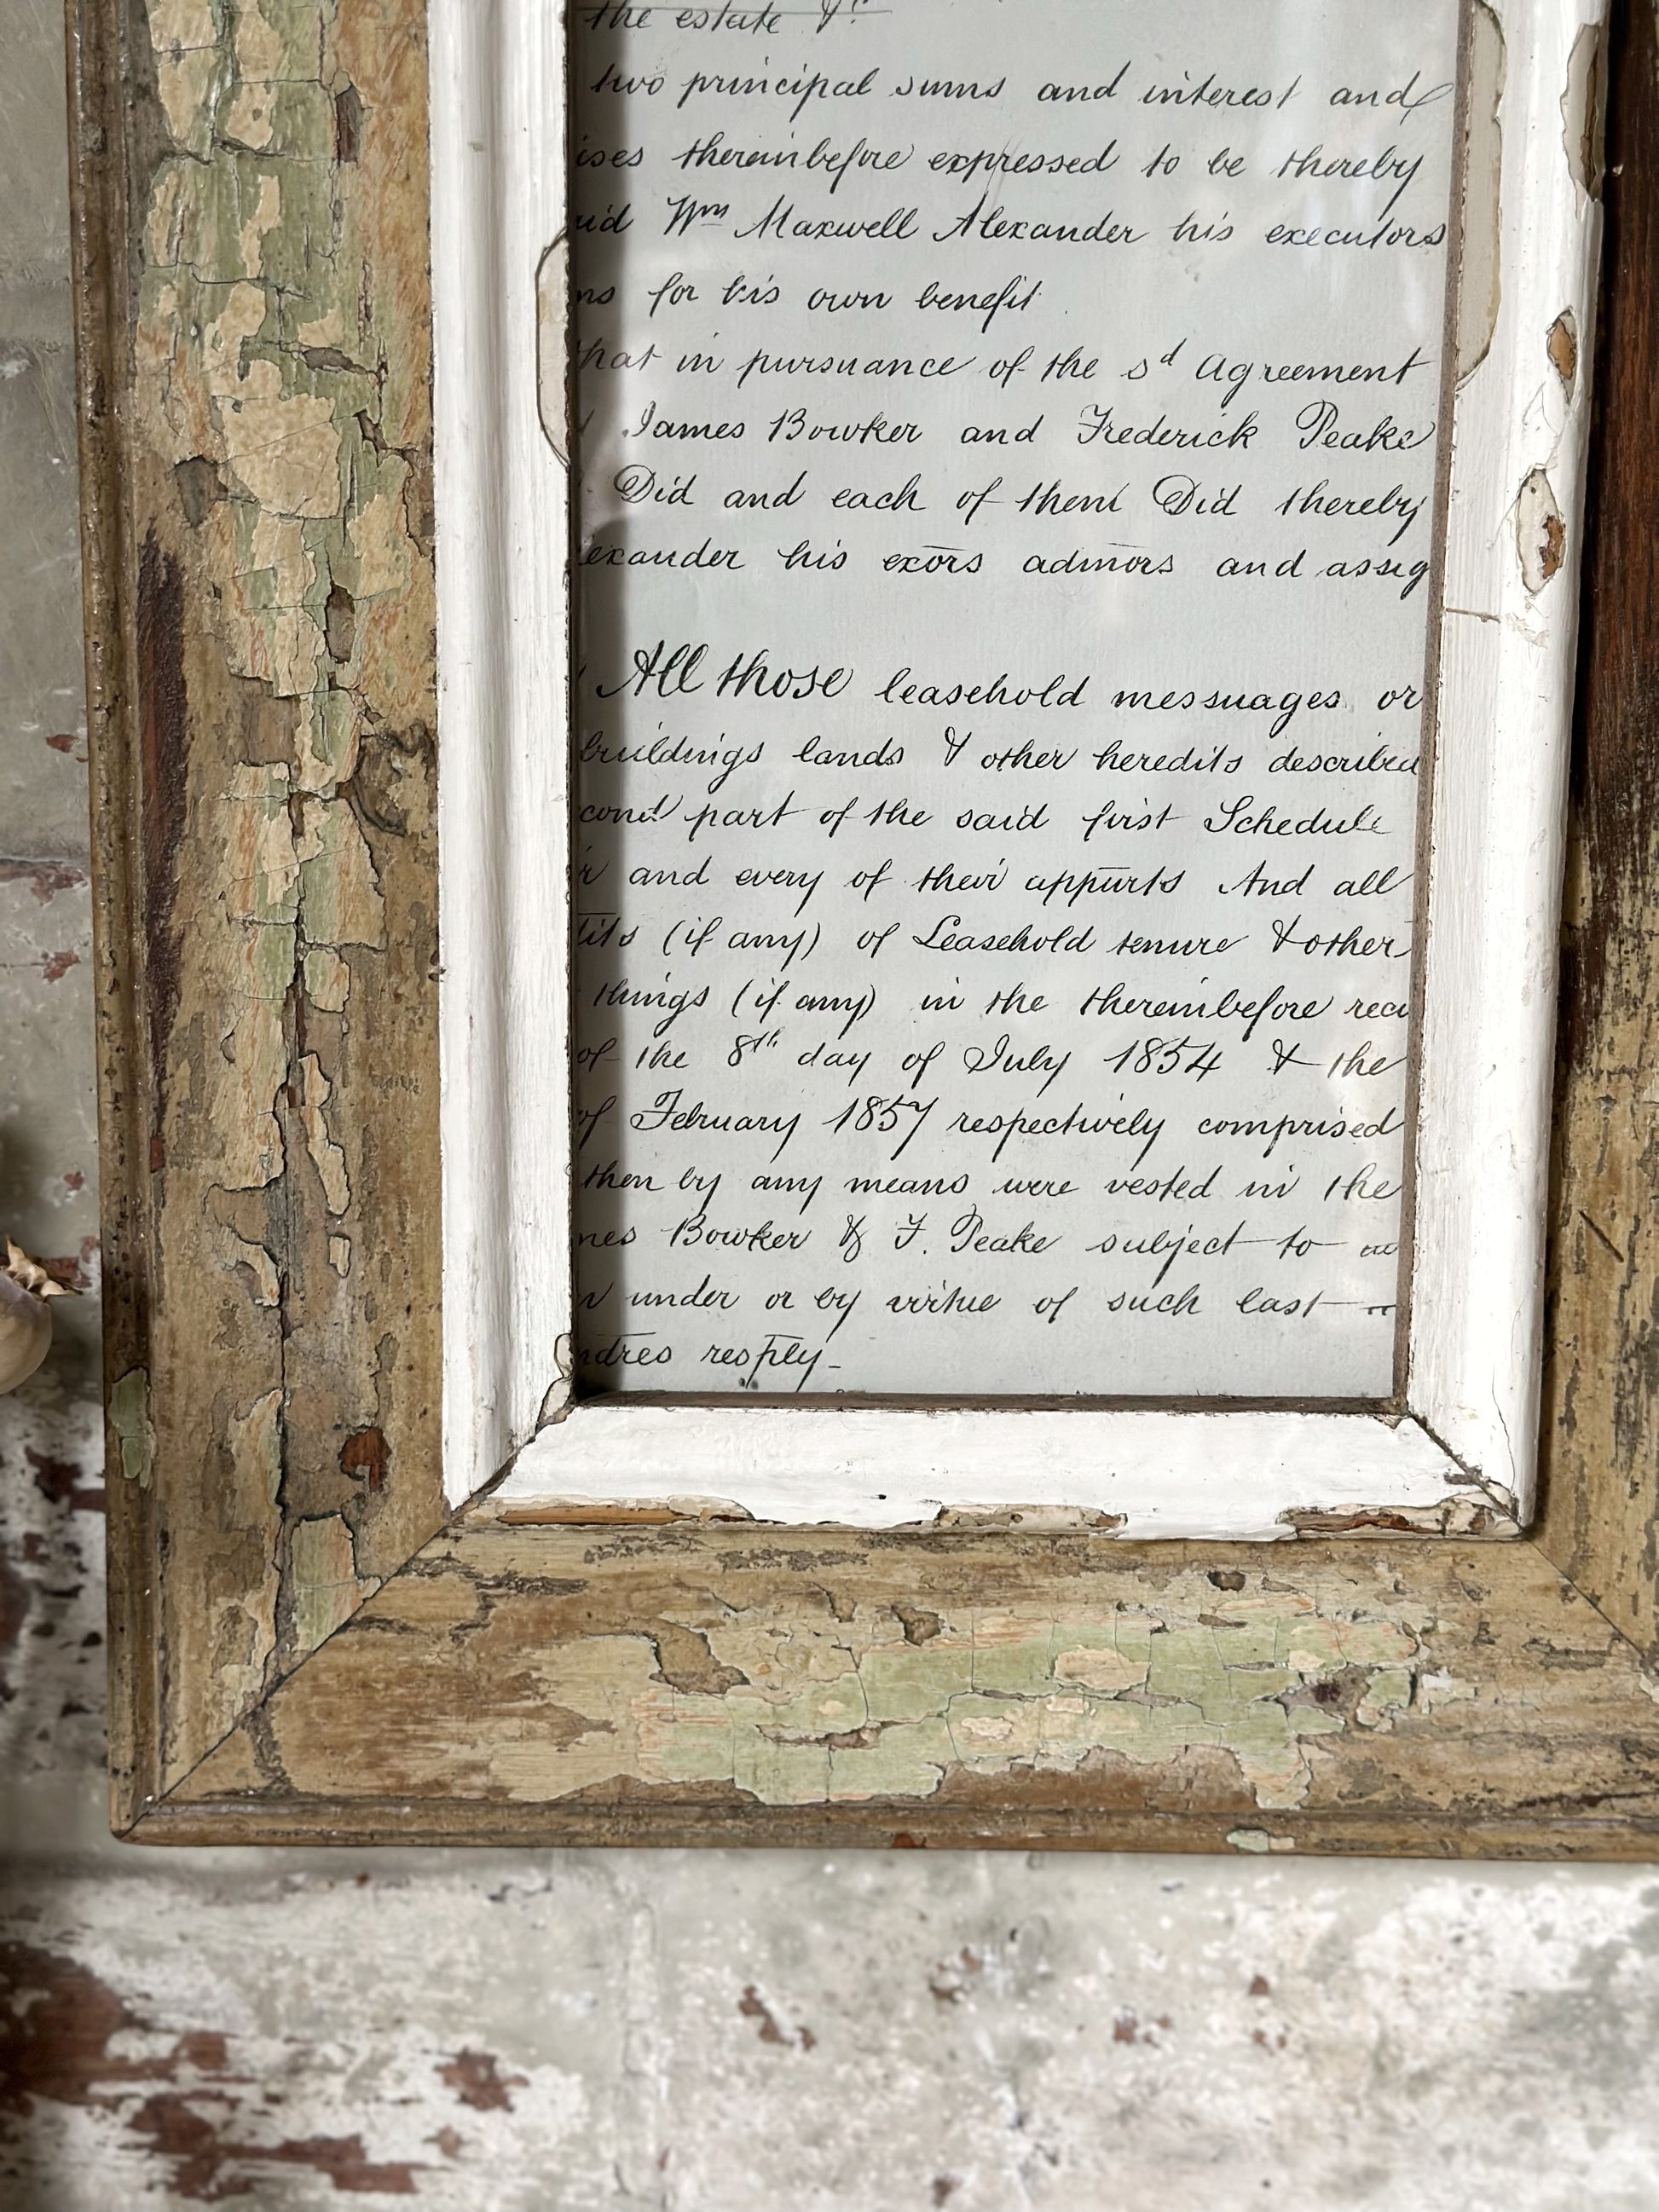 the estate &c
two principal sums and interest and
ises thereinbefore expressed to be thereby
aid Wm Maxwell Alexander his executors
ns for his own benefit
hat in pursuance of the sd Agreement
James Bowker and Frederick Peake
Did and each of them Did thereby
exander his exors admors and assig
All those leasehold messuages or
buildings lands & other heredits described
cond part of the said first Schedule
r and every of their appurts And all
its (if any) of Leasehold tenure & other
things (if any) in the thereinbefore reci
of the 8th day of July 1854 & the
of February 1857 respectively comprised
then by any means were vested in the
mes Bowker & F. Peake subject to
under or by virtue of such last
ndres resply